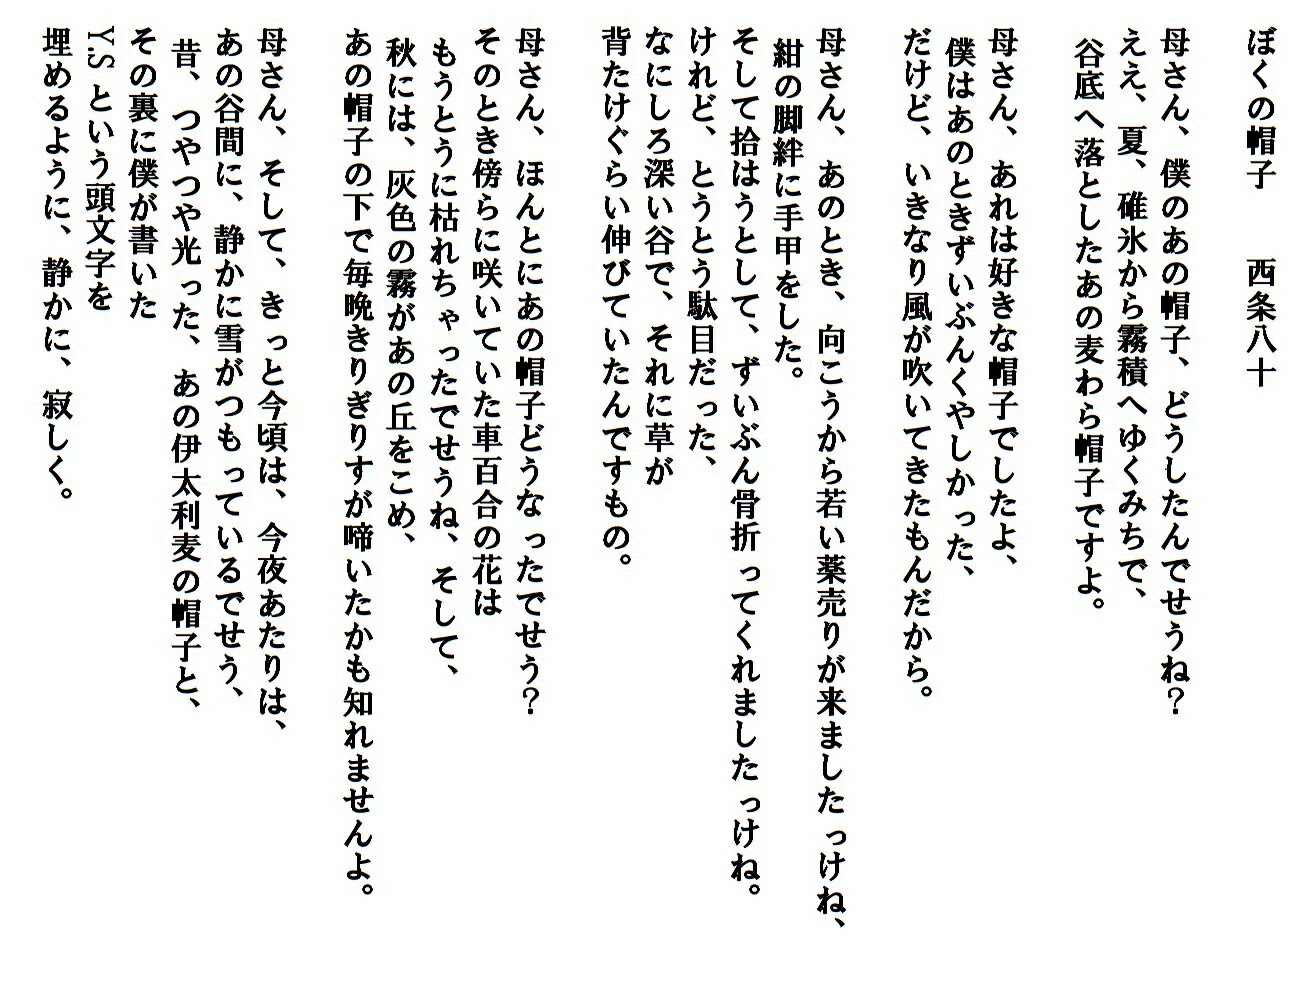 ぼくの帽子　　西条八十
母さん、僕のあの帽子、どうしたんでせうね？
ええ、夏、碓氷から霧積へゆくみちで、
谷底へ落としたあの麦わら帽子ですよ。
母さん、あれは好きな帽子でしたよ、
僕はあのときずいぶんくやしかった、
だけど、いきなり風が吹いてきたもんだから。
母さん、あのとき、向こうから若い薬売りが来ましたっけね、
紺の脚絆に手甲をした。
そして拾はうとして、ずいぶん骨折ってくれましたっけね。
けれど、とうとう駄目だった、
なにしろ深い谷で、それに草が
背たけぐらい伸びていたんですもの。
母さん、ほんとにあの帽子どうなったでせう？
そのとき傍らに咲いていた車百合の花は
もうとうに枯れちゃったでせうね、そして、
秋には、灰色の霧があの丘をこめ、
あの帽子の下で毎晩きりぎりすが啼いたかも知れませんよ。
母さん、そして、きっと今頃は、今夜あたりは、
あの谷間に、静かに雪がつもっているでせう、
昔、つやつや光った、あの伊太利麦の帽子と、
その裏に僕が書いた
Y.S という頭文字を
埋めるように、静かに、寂しく。